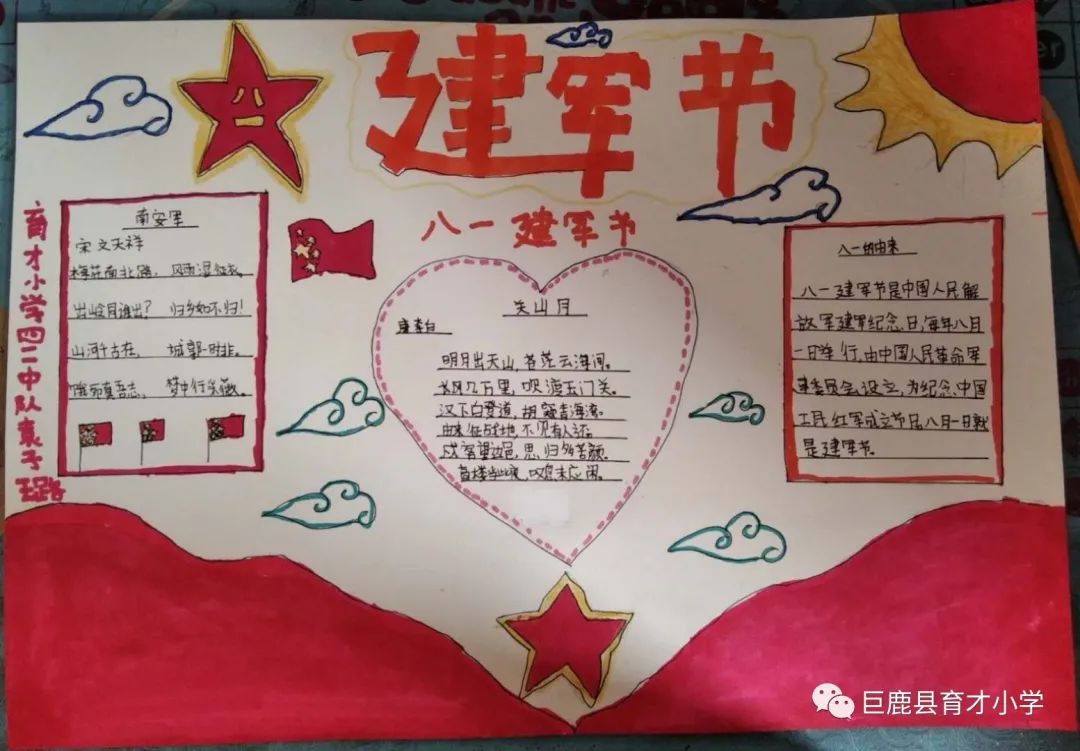 建军节
八一
八一建军节
育才小学四二中队袁子
南安军
宋 文天祥
梅花南北路，风雨湿征衣。
出岭同谁出？归乡如不归！
山河千古在，城郭一时非。
饿死真吾志，梦中行采薇。
关山月
唐李白
明月出天山，苍茫云海间。
长风几万里，吹渡玉门关。
汉下白登道，胡窥青海湾。
由来征战地，不见有人还。
戍客望边邑，思归多苦颜。
高楼当此夜，叹息未应闲。
八一的由来
八一建军节是中国人民解
放军建军纪念日，每年八月
一日举行，由中国人民革命军
事委员会设立，为纪念中国
工民红军成立节日，八月一日就
是建军节。
巨鹿县育才小学